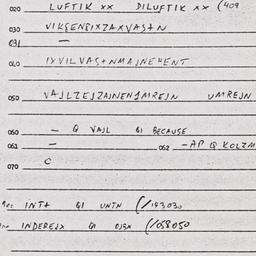 020 LUFTIK xx DILUFTIK xx (409
030 VIKSENSIXZAXVAS+N
031 —
040 IXVILVAS+NMAJNEWENT
050 VAJLZEJZAJNENJMREJN UMREJN
060 — Q VAJL QI BECAUSE
061 — 062 —AP Q KOLZM
070 C
INT+ QI UNTN (/143030
INDEREJX QI DJSN (/058050